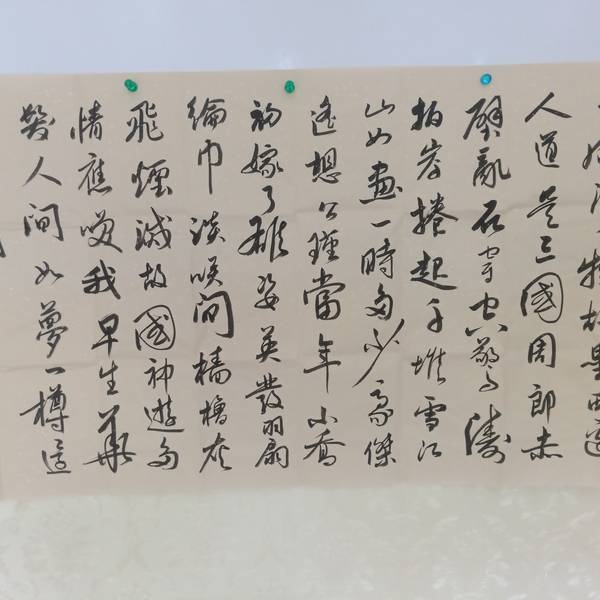 物故壘西邊
人道是三國周郎赤
壁亂石穿空驚濤
拍岸捲起千堆雪江
山如畫一時多少豪傑
遙想公瑾當年小喬
初嫁了雄姿英發羽扇
綸巾談咲間檣櫓灰
飛煙滅故國神遊多
情應咲我早生華
髮人間如夢一樽還